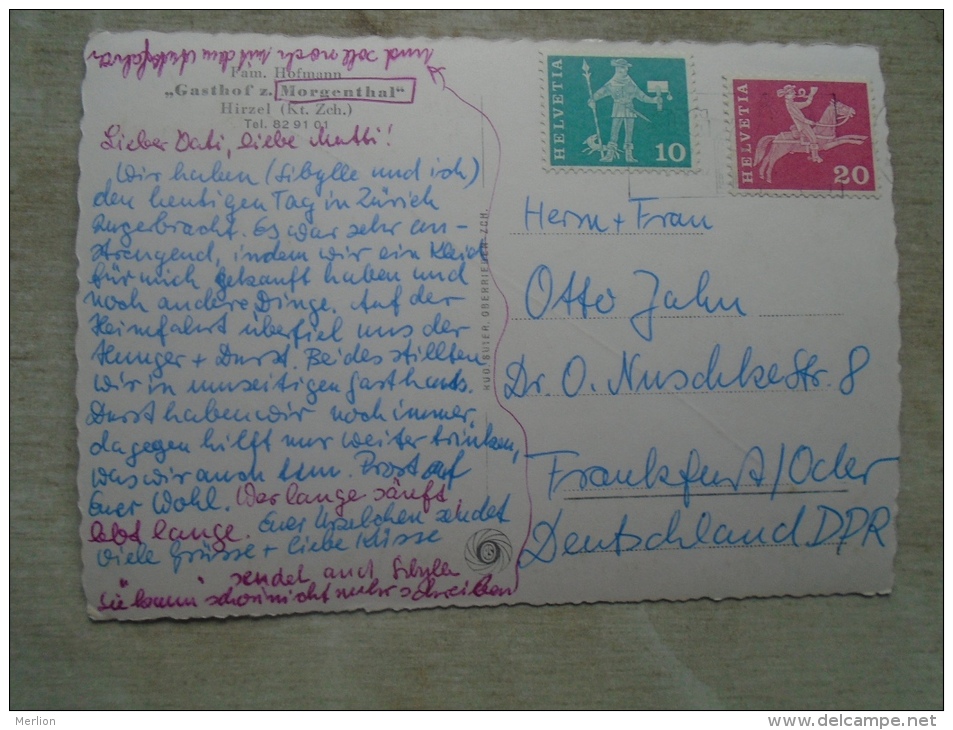 und soll noch mit dem Auto fahren
Fam. Hofmann
„Gasthof z. Morgenthal"
Hirzel (Kt. Zch.)
Tel. 82 91 01
Lieber Vati, liebe Mutti!
Wir haben (Sibylle und ich)
den heutigen Tag in Zürich
zugebracht. Es war sehr an-
strengend, indem wir ein Kleid
für mich gekauft haben und
noch andere Dinge. Auf der
Heimfahrt überfiel uns der
Hunger + Durst. Beides stillten
wir in umseitigen Gasthaus.
Durst haben wir noch immer,
dagegen hilft nur weiter trinken,
was wir auch tun. Prost auf
Euer Wohl. Wer lange säuft
lebt lange. Euer sendet
viele Grüsse + liebe Küsse
" " sendet auch Sibylle
Sie kann schon nicht mehr schreiben
HUG. SUTER, OBERRIEDEN-ZCH.
HELVETIA
10
HELVETIA
20
Herrn + Frau
Otto Jahn
Dr. O. Nuschke Str. 8
Frankfurt/Oder
Deutschland DDR
Merlion
www.delcampe.net